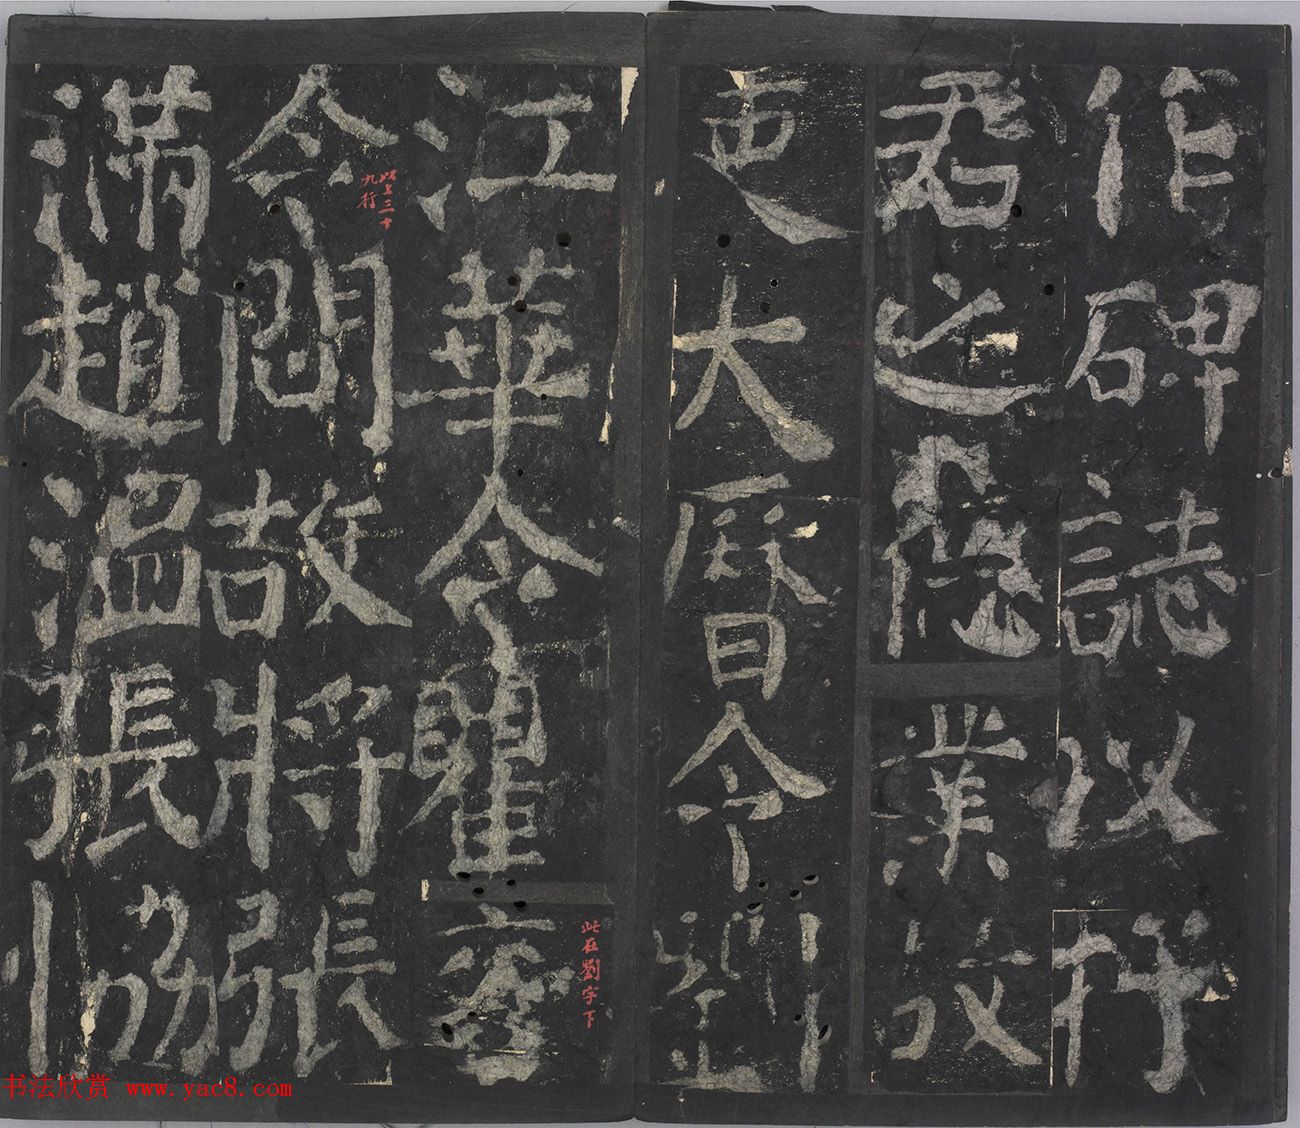 作碑誌以抒
君之德業故
吏大曆令劉
江華令瞿袞
此在劉字下
令問故將張
三十九行
滿趙溫張協
书法欣赏 www.yac8.com